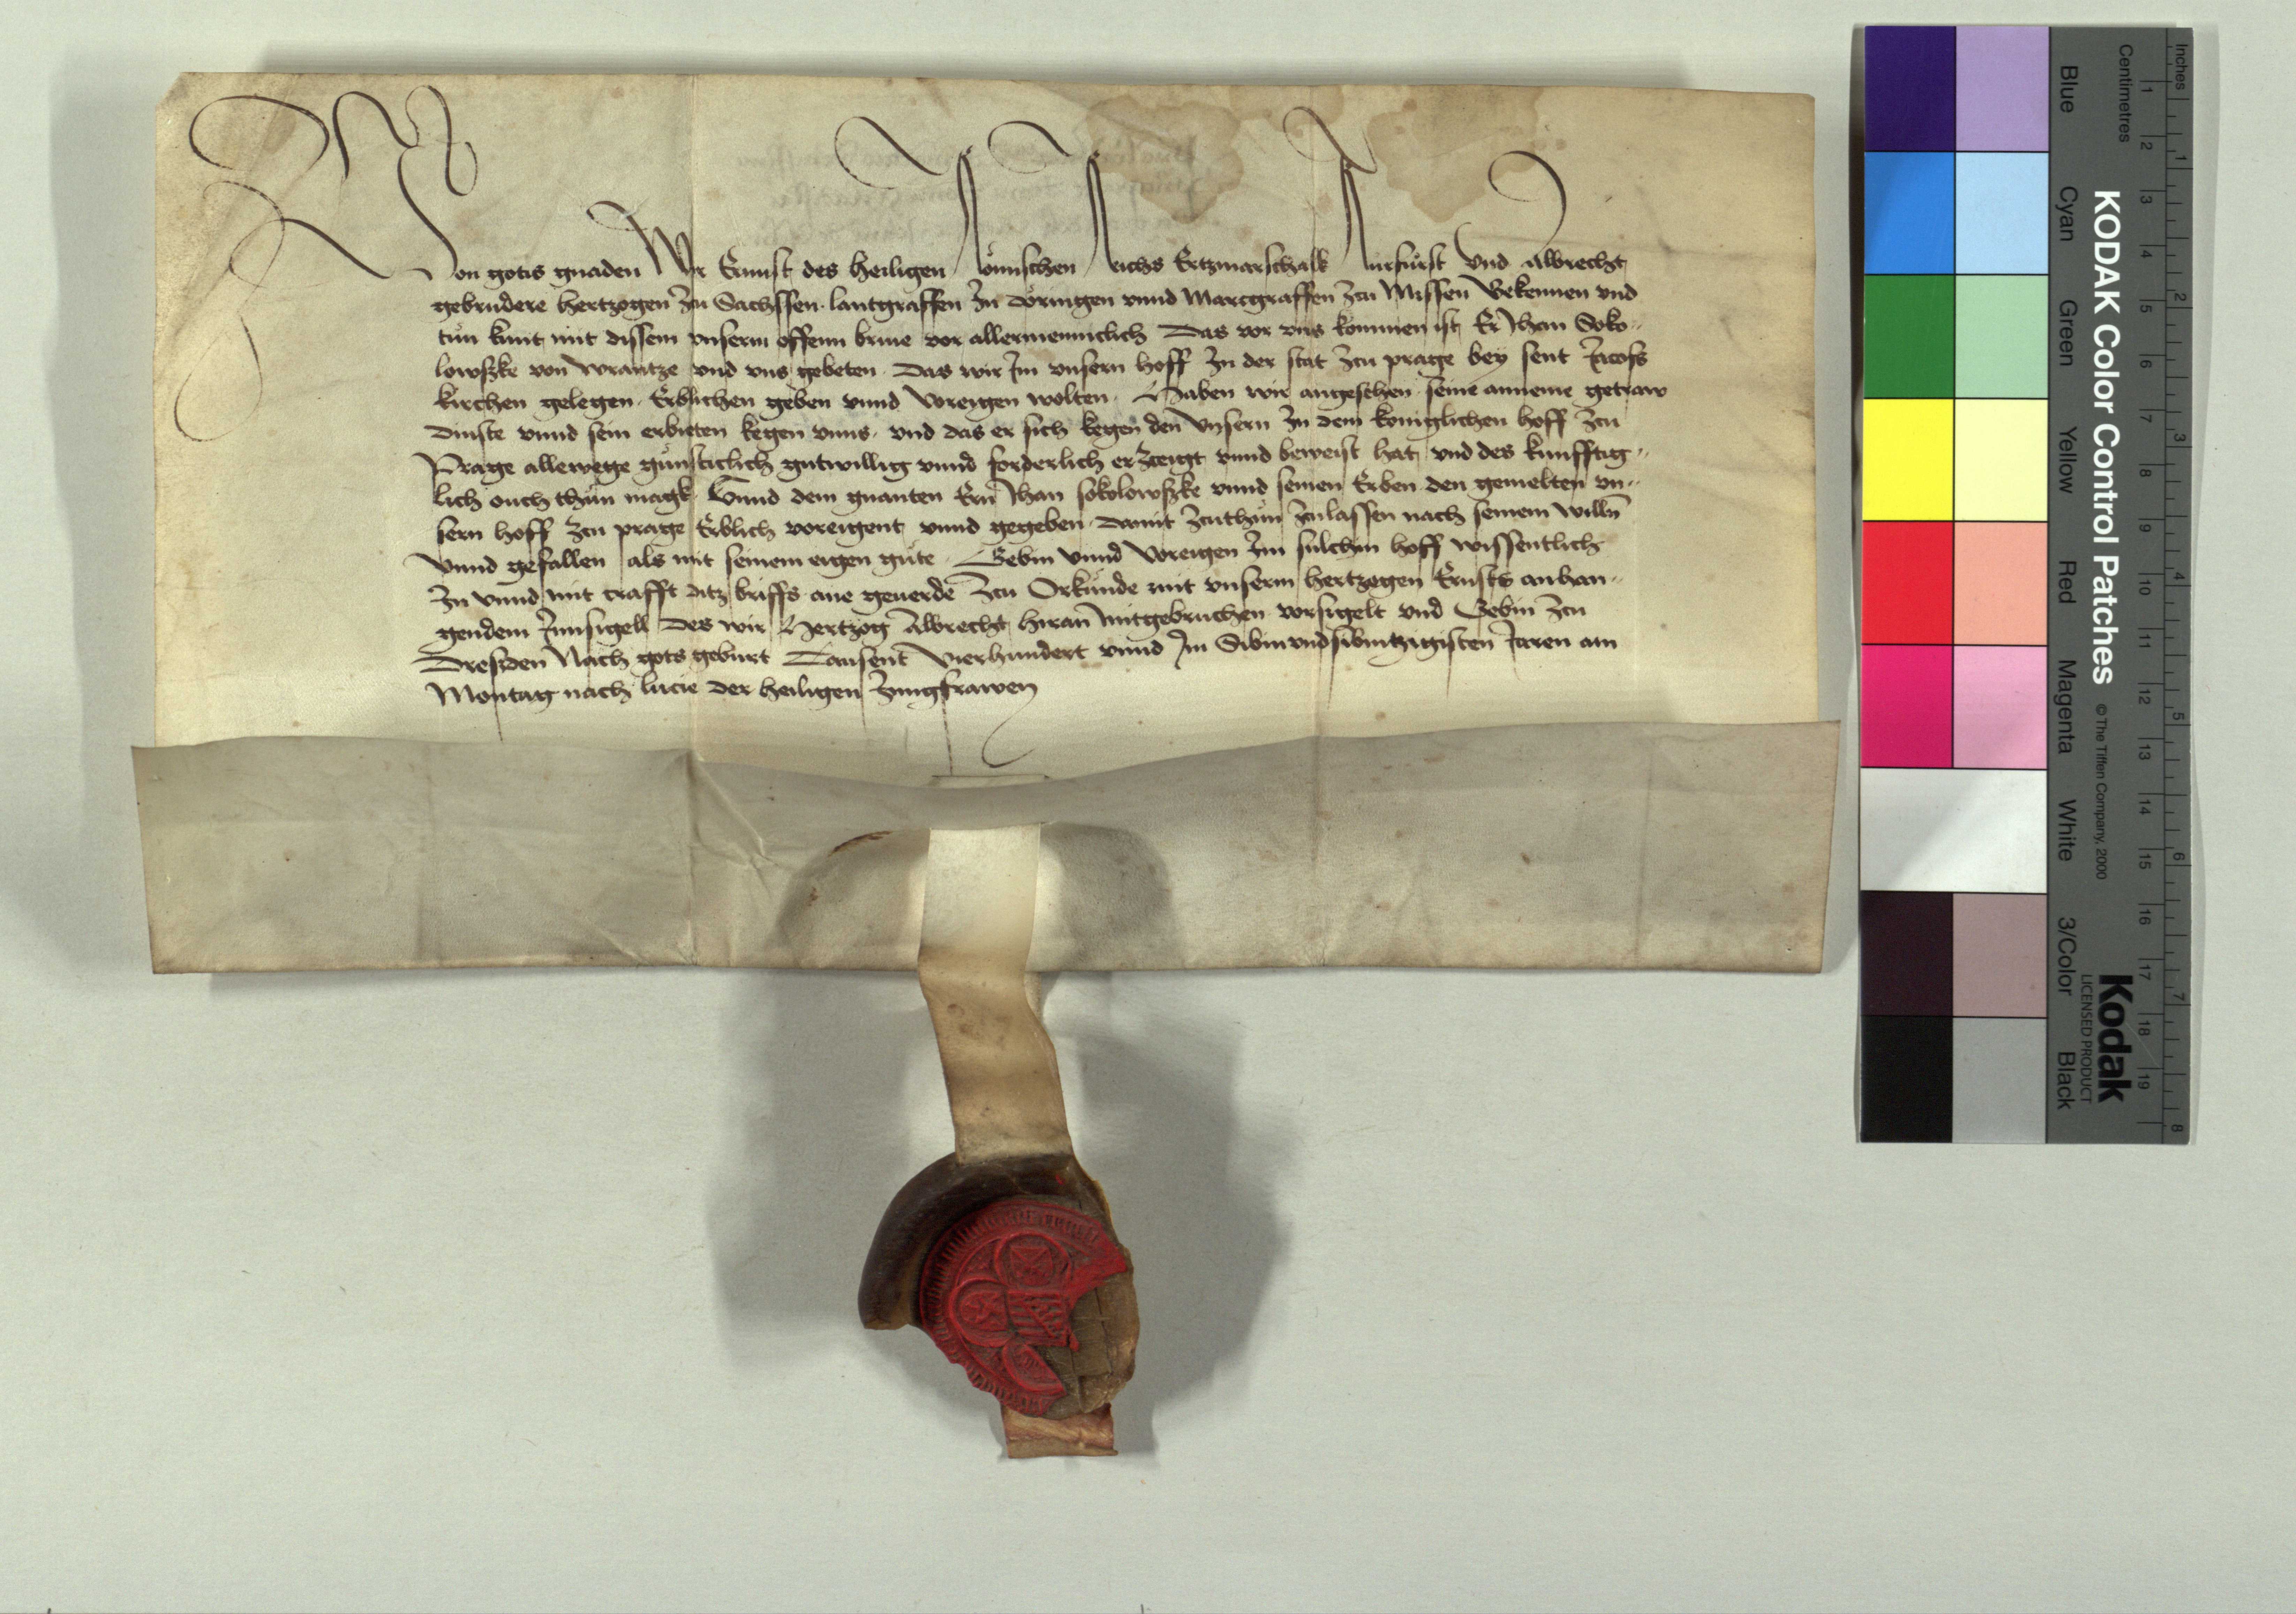 Von gotis gnaden Wir Ernnst des heiligen Römischen Reichs Ertzmarschalk Kurfürst vnd Albrecht
gebrudere hertzogen zu Sachssen lantgraffen In Döringen vnnd Marcgraffen zcu Missen Bekennen vnd
tün kunt mit dissem vnserm offenn briue vor allermenniclich Das vor vns kommen ist Er Jhan Soko-
lowszke von Wrantze vnd vns gebeten Das wir Im vnsern hoff In der stat zcu prage bey sent Jacofs
kirchen gelegen Erblichen geben vnnd Voreigen wolten Haben wir angesehen seine anneme getraw
Dinste vnnd sein erbieten kegen vnns vnd das er sich kegen den Vnsern In dem koniglichen hoff zcu
Prage allewege günsticlich gutwillig vnnd forderlich erzceigt vnnd beweist hat vnd des kunfftig-
lich ouch thün magk Vnnd dem gnanten Ern Jhan sokolowszke vnnd seinen Erben den gemelten vn-
sern hoff zcu prage Erblich voreigent vnnd gegeben Damit zcuthün zculassen nach seinem willn
Vnnd gefallen als mit seinem eigen güte Gebin vnnd Voreigen Im sulchin hoff wissentlich
In vnnd mit crafft ditz briffs ane geuerde Zcu Orkunde mit vnserm hertzogen Ernsts anhan-
gendem Innsigell Des wir Hertzog Albrecht hiran mitgebruchen vorsigelt vnd Gebin zcu
Dresden Nach gots geburt Tausent Vierhundert vnnd Im Sibinvndsibintzigisten Jaren am
Montag nach lucie der heiligen Jungfrawen
KODAK Color Control Patches
© The Tiffen Company, 2000
Kodak
LICENSED PRODUCT
Inches
Centimetres
1 2 3 4 5 6 7 8 9 10 11 12 13 14 15 16 17 18 19
1 2 3 4 5 6 7 8
Blue
Cyan
Green
Yellow
Red
Magenta
White
3/Color
Black